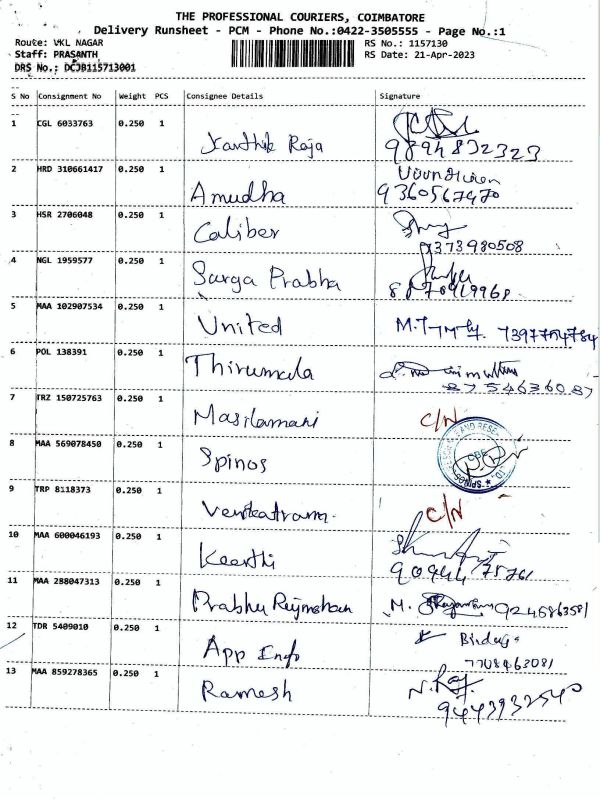 THE PROFESSIONAL COURIERS, COIMBATORE
Delivery Runsheet - PCM - Phone No.:0422-3505555 - Page No.:1
Route: VKL NAGAR RS No.: 1157130
Staff: PRASANTH RS Date: 21-Apr-2023
DRS No.: DCJB115713001
S No Consignment No Weight PCS Consignee Details Signature
1 CGL 6033763 0.250 1
Karthik Raja 9894832323
2 HRD 310661417 0.250 1
Amudha 9360567970
3 HSR 2706048 0.250 1
Caliber 9373980508
4 NGL 1959577 0.250 1
Surga Prabha
5 MAA 102907534 0.250 1
United
6 POL 138391 0.250 1
Thirumala 8754636087
7 TRZ 150725763 0.250 1
Masilamani C/N
8 MAA 569078450 0.250 1
Spinos
9 TRP 8118373 0.250 1
Venkatrama C/N
10 MAA 600046193 0.250 1
Keerthi
11 MAA 288047313 0.250 1
Prabhu Rajmohan M.
12 TDR 5409010 0.250 1
App Info 7708463081
13 MAA 859278365 0.250 1
Ramesh N. Raj
9443932540